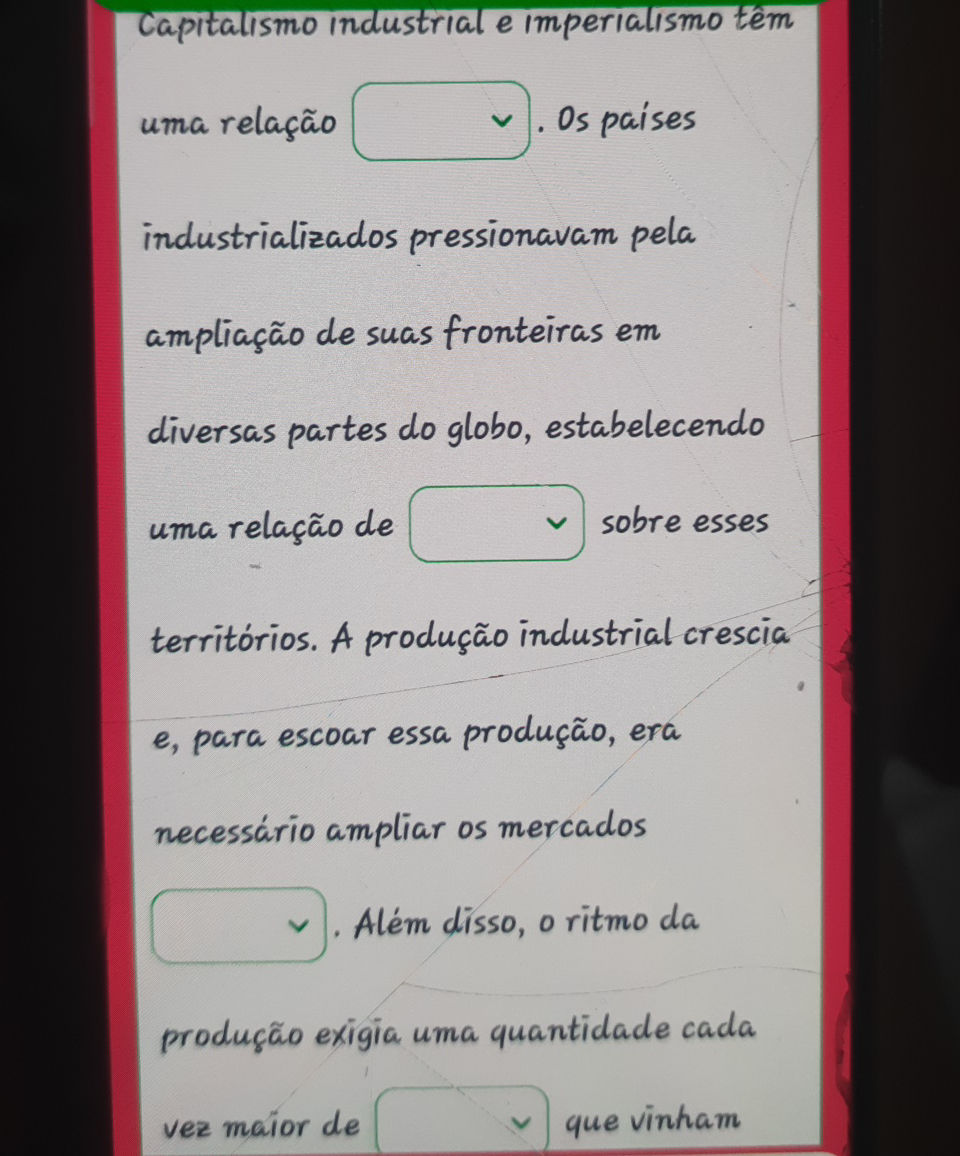 Capitalismo industrial e imperialismo têm
uma relação . Os países
industrializados pressionavam pela
ampliação de suas fronteiras em
diversas partes do globo, estabelecendo
uma relação de sobre esses
territórios. A produção industrial crescia
e, para escoar essa produção, era
necessário ampliar os mercados
. Além disso, o ritmo da
produção exigia uma quantidade cada
vez maior de que vinham